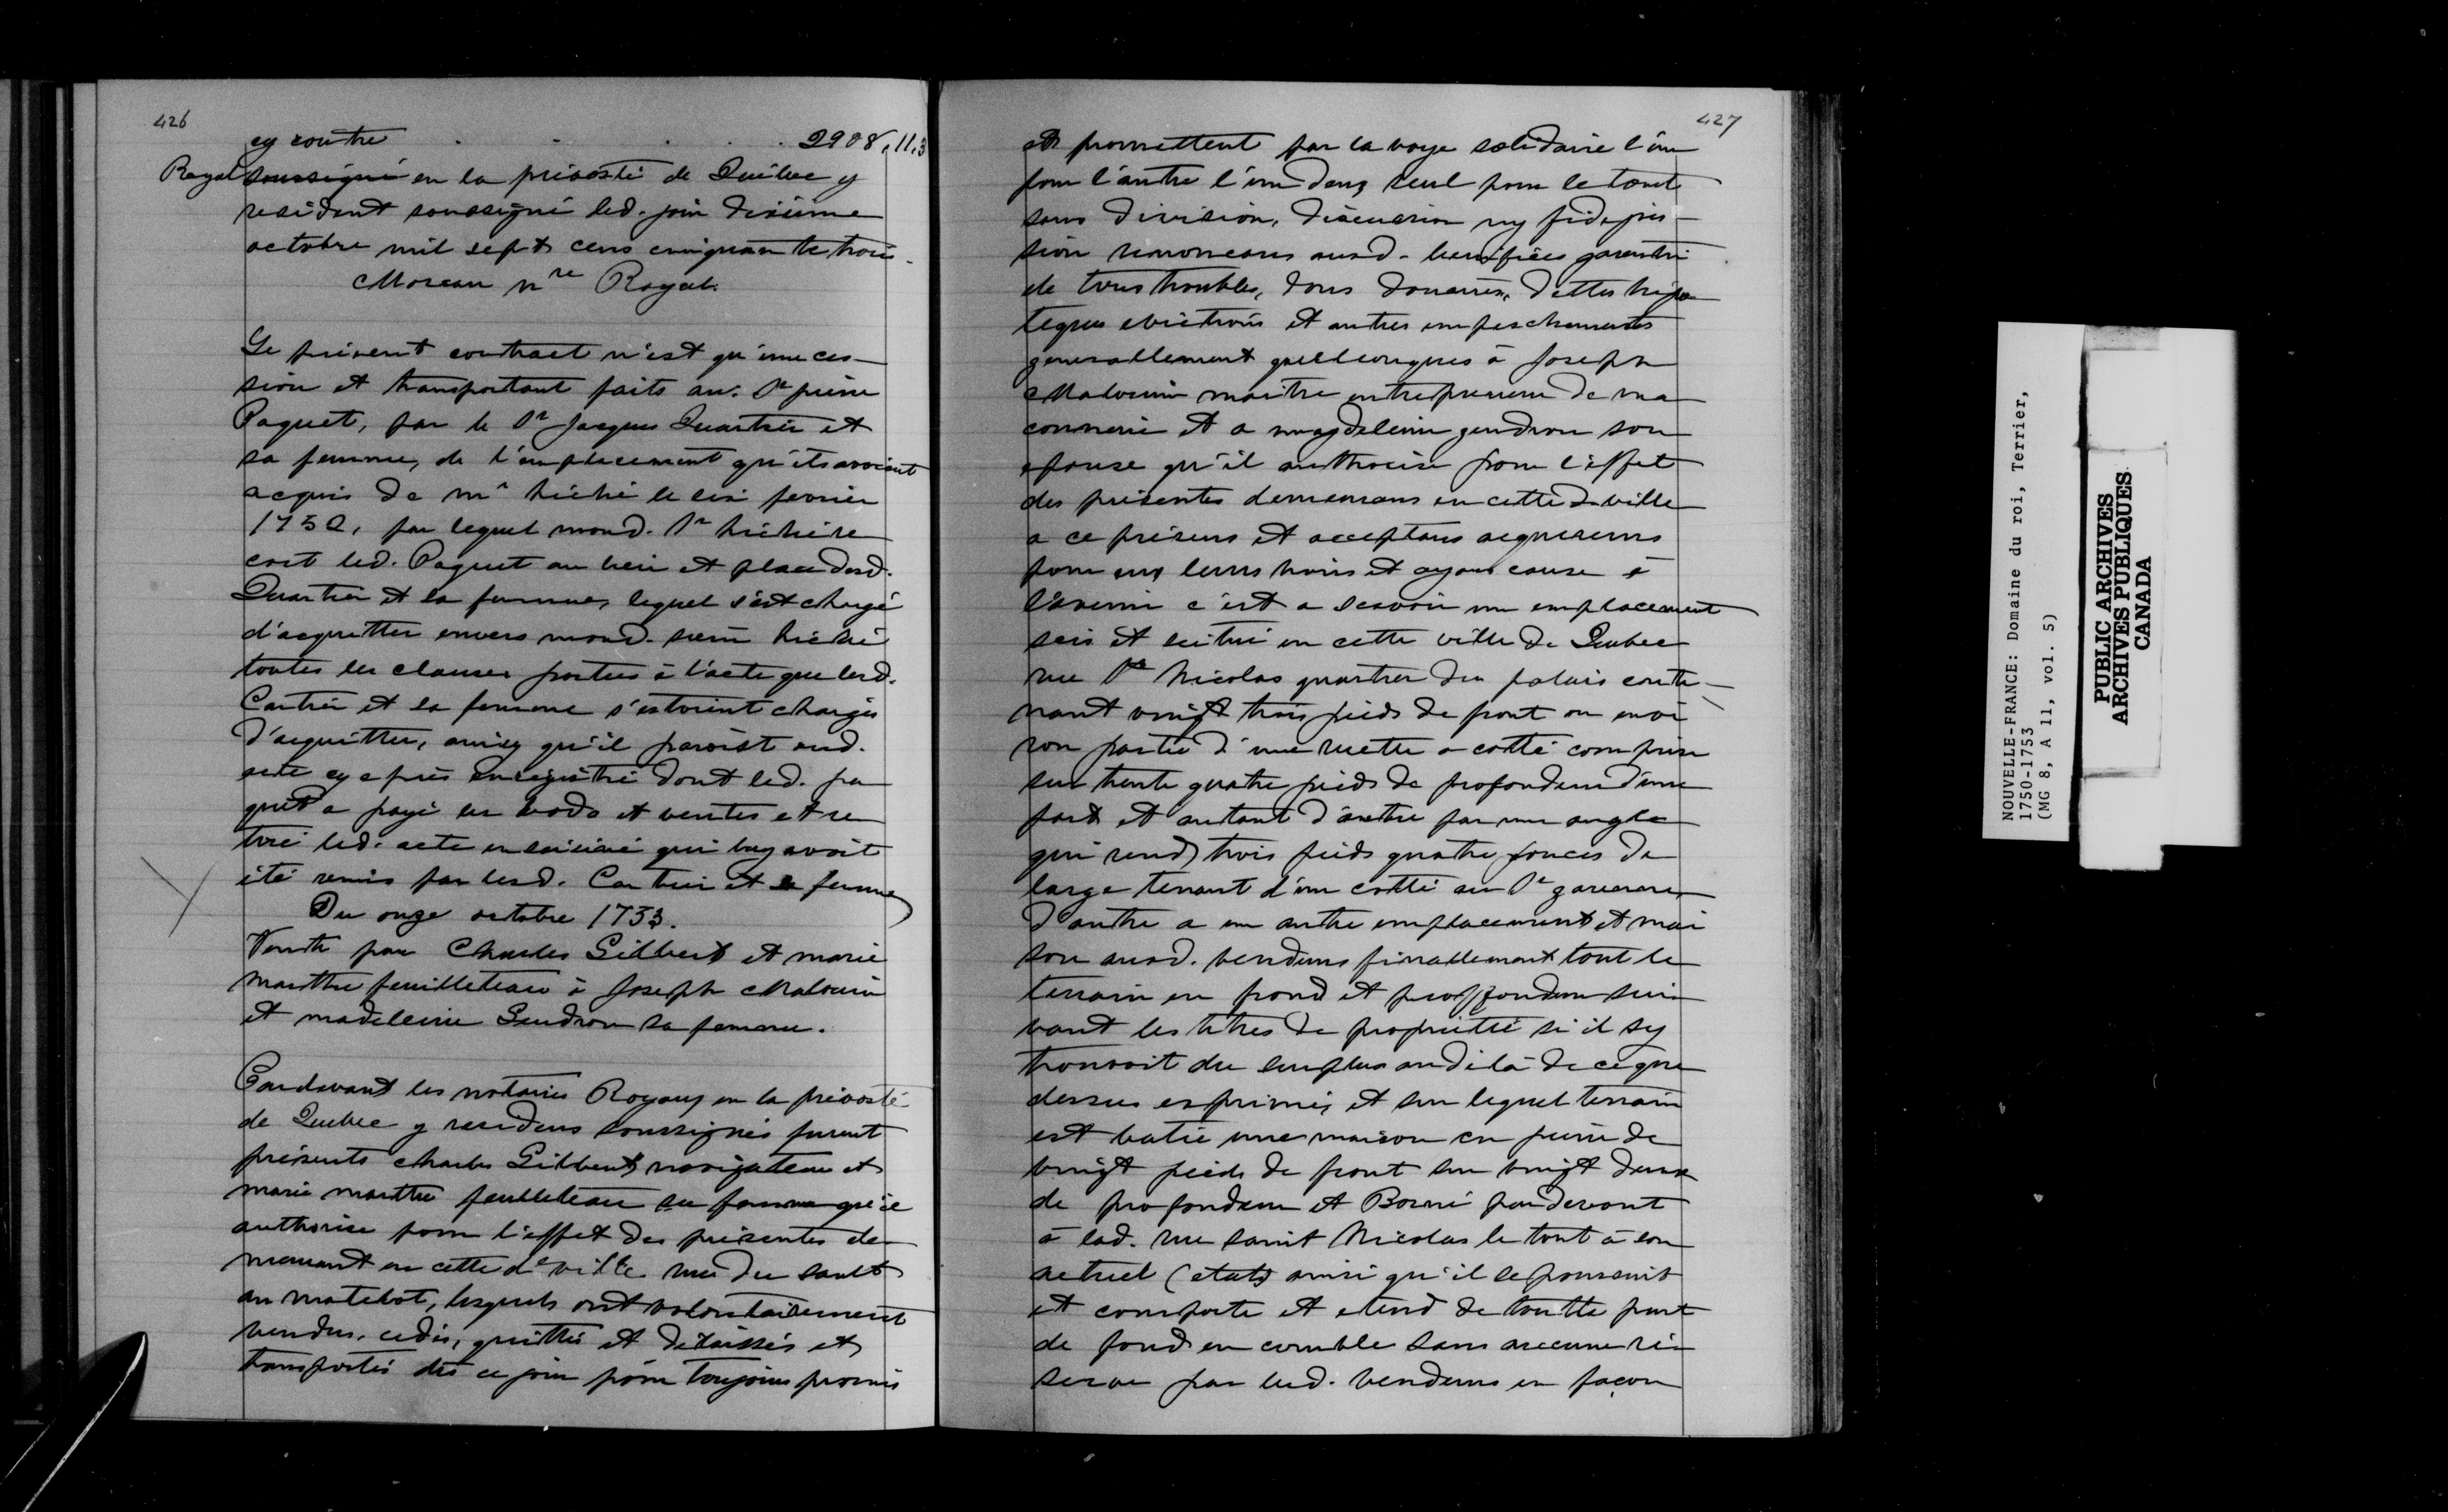 426
cy contre . . . . 2908,11,3
Royal soussigné en la prévosté de Québec y
résident soussigné led. jour dixième
octobre mil sept cens cinquante trois.
Moreau nre Royal.
Le présent contract n'est qu'une ces-
sion et transportant faits au Sr pierre
Paquet, par le Sr Jacques Quartier et
sa femme, de l'emplacement qu'ils avoient
acquis de mr hiché le six fevrier
1752, par lequel mond. Sr hiché re
coit led. Paquet au lieu et place desd.
Quartier et sa femme, lequel s'est chargé
d'acquitter envers mond. sieur hiché
toutes les clauses portées à l'acte que lesd.
Cartier et sa femme s'estoient chargés
d'acquitter, ainsy qu'il paroist aud.
acte cy après enregistré dont led. pa
quet a payé les lods et ventes et re
tiré led. acte en saisiné qui luy avoit
été remis par lesd. Cartier et sa femme
Du onze octobre 1753.
Vente par Charles Gilbert et marie
marthe feuilleteau à Joseph Malouin
et madeleine Gendron sa femme.
Pardevant les notaires Royaux en la prévosté
de Quebec y residens soussignés furent
présents charles Gilbert navigateur et
marie marthe feuilleteau sa femme qu'il
authorise pour l'effet des présentes de
meurant en cette de ville rue du sault
au matelot, lesquels ont volontairement
vendus, cedés, quittés et délaissés et
transportés dès ce jour pour toujours promis
427
et promettent par la voye solidaire l'un
pour l'autre l'un deux seul pour le tout
sans division, discussion ny fidejus-
sion renonceans ausd. benefices garentir
de tous troubles, dons douaires, dettes hipo
teques evictions et autres empeschements
generallement quelconques à Joseph
Malouin maitre entrepreneur de ma
connerie et a magdeleine gendron son
epouse qu'il authorise pour l'effet
des présentes demeurans en cette d. ville
a ce présens et acceptans acquereurs
pour eux leurs hoirs et ayans cause à
l'avenir c'est a scavoir un emplacement
scis et scitué en cette ville de Quebec
rue St Nicolas quartier du palais conte-
nant vingt trois pieds de front ou envi
ron partie d'une ruette a cotté comprise
sur trente quatre pieds de profondeur d'une
part et autant d'autre par un angle
qui rend trois pieds quatre pouces de
large tenant d'un cotté au Sr
d'autre a un autre emplacement et mai
son ausd. vendeurs finallement tout le
terrain en frond et proffondeur sui
vant les titres de propriété si il sy
trouvoit du surplus au delà de ce que
dessus exprimé, et sur lequel terrain
est batie une maison en pierre de
vingt pieds de front sur vingt deux
de profondeur et Borné pardevant
à lad. rue saint Nicolas le tout à son
actuel (etat) ainsi qu'il se poursuit
et comporte et etend de toutte part
de fond en comble sans aucune ré
serve par lesd. vendeurs en façon
NOUVELLE-FRANCE: Domaine du roi, Terrier,
1750-1753
(MG 8, A 11, vol. 5)
PUBLIC ARCHIVES
ARCHIVES PUBLIQUES
CANADA